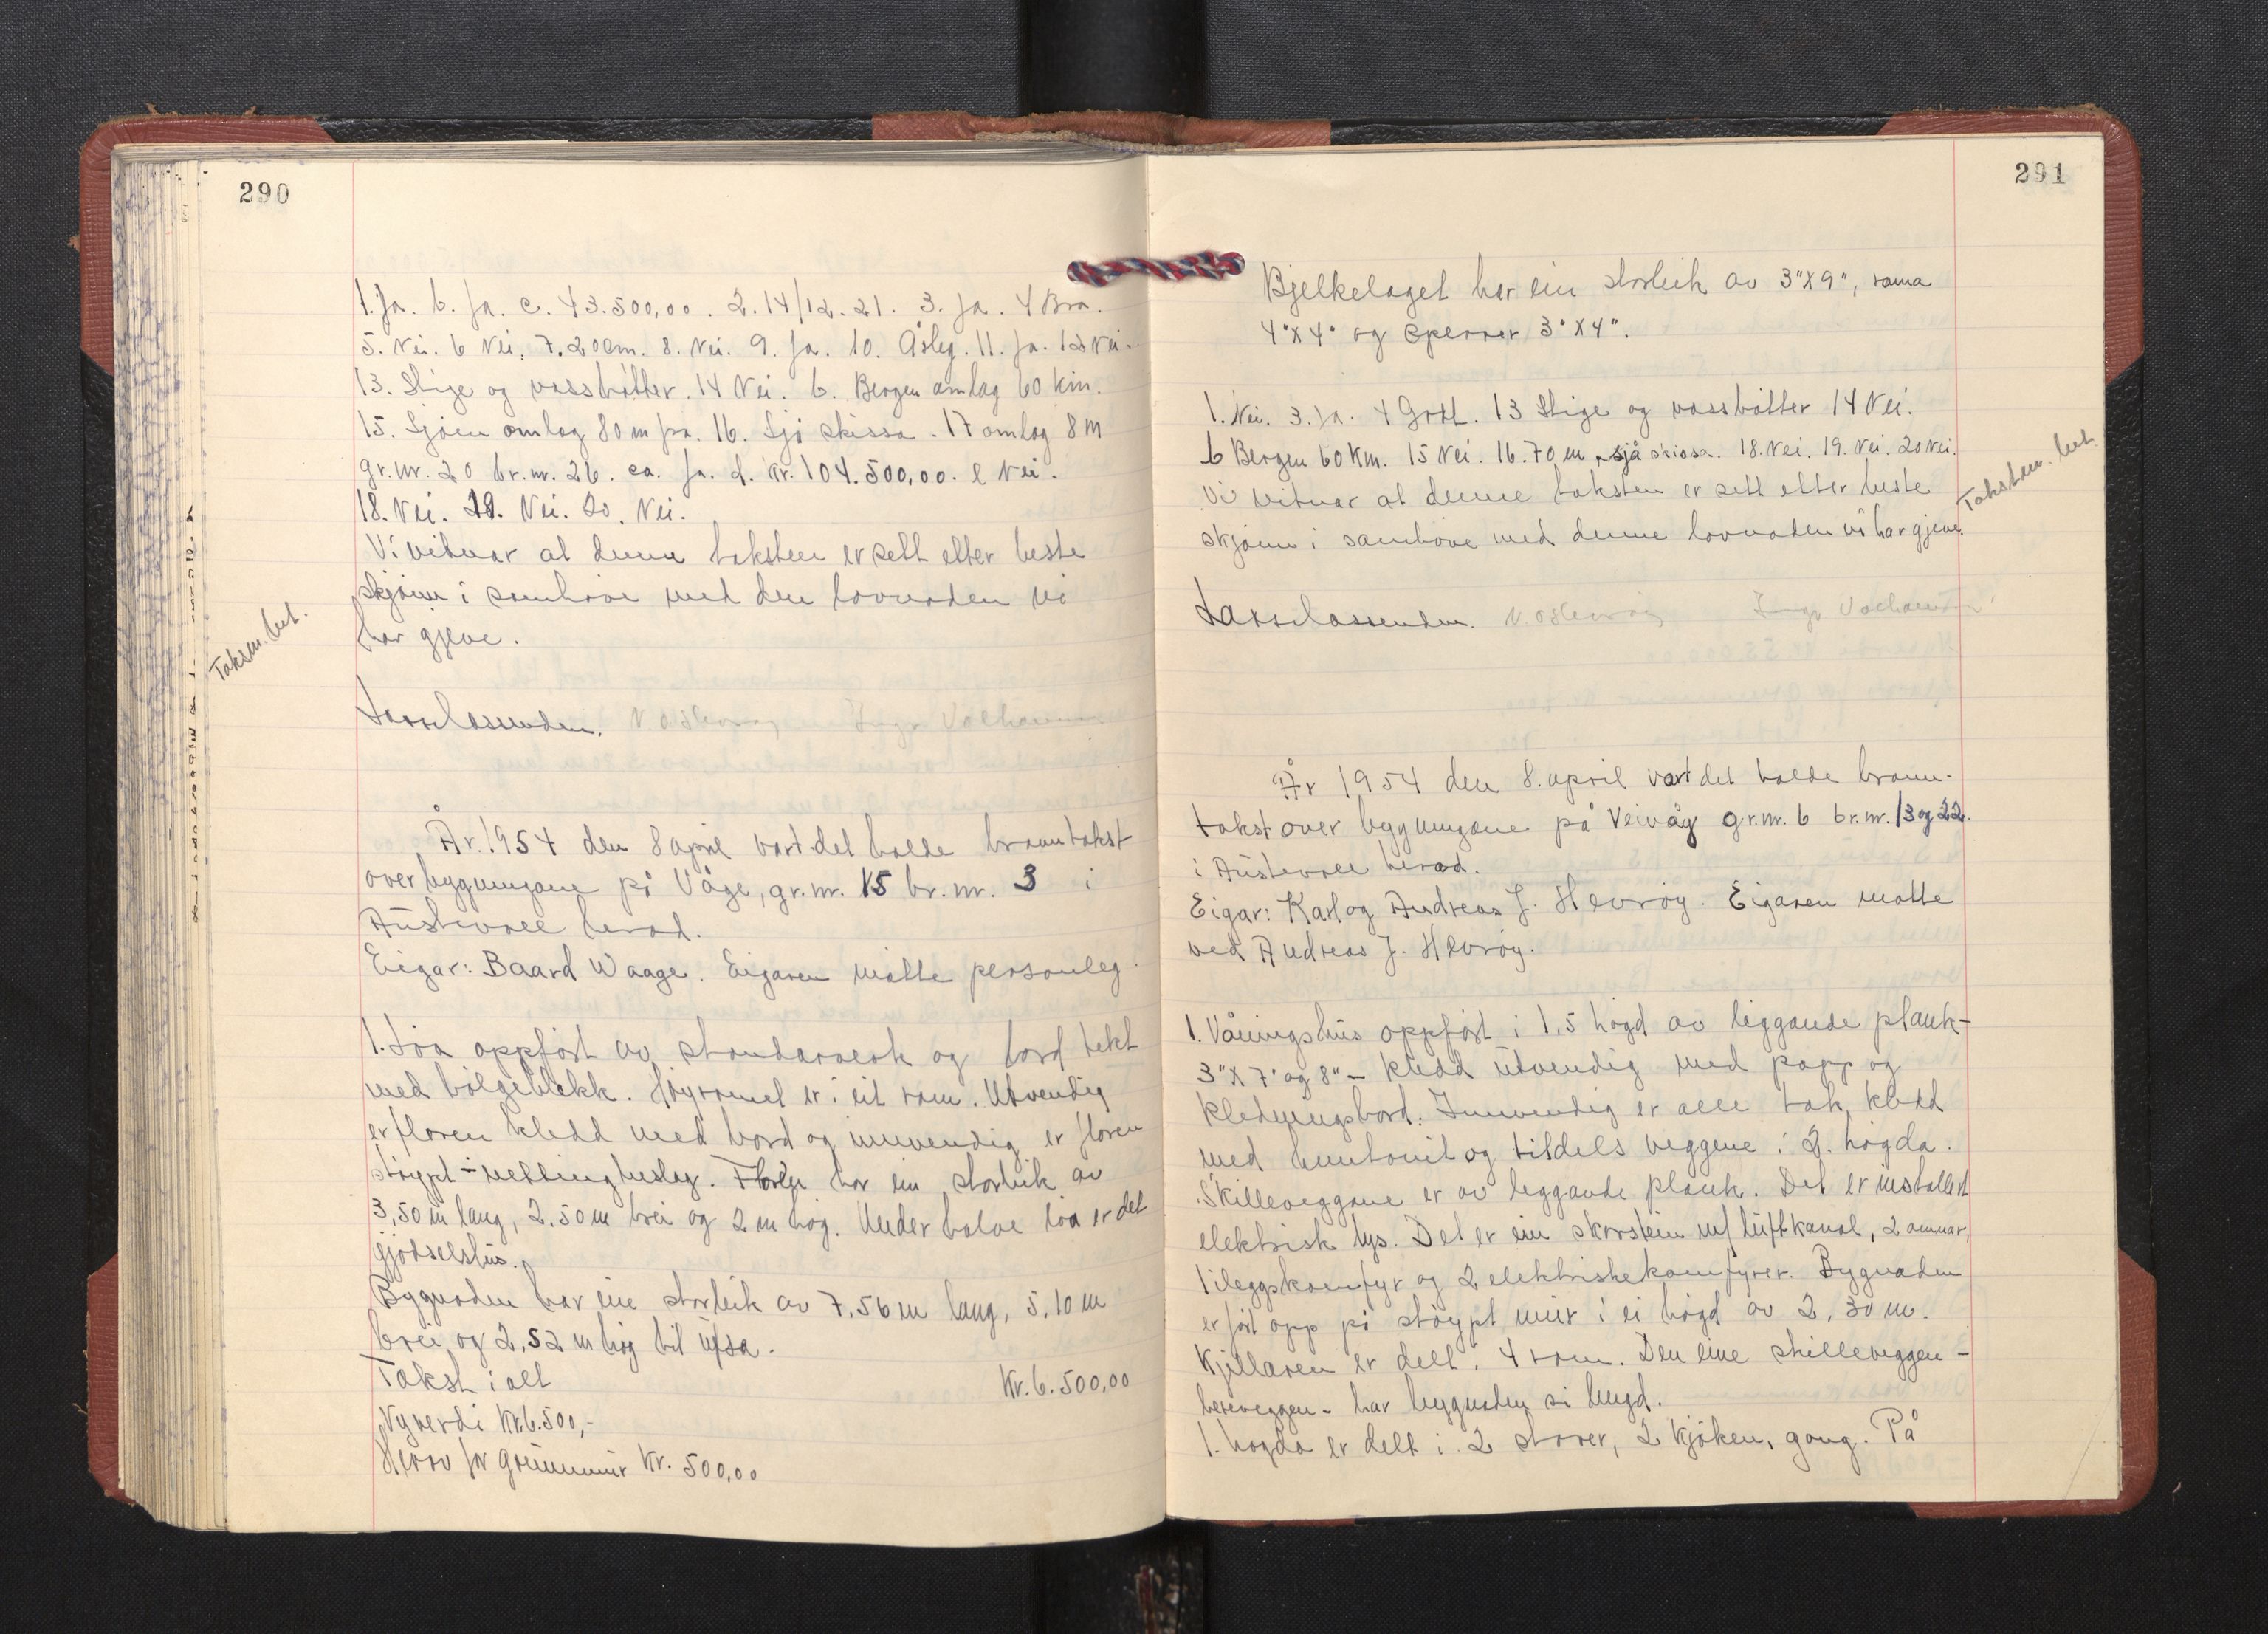 290
1. Ja. b. Ja. c. 43.500,00. 2. 14/12.21. 3. Ja. 4 Bra.
5. Nei. 6 Nei. 7. 20cm. 8. Nei. 9. Ja. 10. Åsleg. 11. Ja. 12 Nei.
13. Stige og vassbøtter. 14 Nei. b. Bergen omlag 60 km.
15. Sjøen omlag 80 m fra. 16. Sjå skissa. 17 omlag 8 M
gr.nr. 20 br.nr. 26. ca. Ja. d. Kr. 104.500,00. e Nei.
18. Nei. 19. Nei. 20. Nei.
Vi vitnar at denne taksten er sett etter beste
skjønn i samhøve med den lovnaden vi
har gjeve.
Taksm. bet.
År 1954 den 8 april vart det halde branntakst
over bygningane på Våge, gr.nr. 15 br.nr. 3 i
Austevoll herad.
Eigar: Baard Waage. Eigaren møtte personleg.
1. Löa oppført av standarverk og bord tekt
med bølgeblekk. Høyromet er i eit rom. Utvendig
er floren kledd med bord og innvendig er floren
støypt - nettingbeslag. Floren har ein storleik av
3,50 m lang, 2.50 m brei og 2 m høg. Under halve löa er det
gjødselshus.
Bygnaden har ein storleik av 7,56 m lang, 5,10 m
brei og 2,52 m høg til ufsa.
Takst i alt Kr. 6.500,00
Nyverdi Kr. 6.500,-
Herav for grunnmur Kr. 500,00
291
Bjelkelaget har ein storleik av 3"X9", rama
4"X4" og sperrer 3"X4".
1. Nei. 3. Ja. 4 Godt. 13 Stige og vassbøtter 14 Nei.
b Bergen 60 Km. 15 Nei. 16. 70 m, sjå skissa. 18. Nei. 19. Nei. 20 Nei.
Vi vitnar at denne taksten er sett etter beste
skjønn i samhøve med denne lovnaden vi har gjeve.
Takstm. bet.
År 1954 den 8. april vart det halde brann-
takst over bygningane på Veivåg gr.nr. 6 br.nr. 13 og 22.
i Austevoll herad.
Eigar: Karl og Andreas J. Hevrøy. Eigaren møtte
ved Andreas J. Hevrøy.
1. Våningshus oppført i 1,5 høgd av liggande plank-
3"X7" og 8" - kledd utvendig med papp og
kledningsbord. Innvendig er alle tak kledd
med huntonit og tildels veggene i 2. høgda.
Skilleveggane er av liggande plank. Det er installert
elektrisk lys. Det er ein skorstein m/ luftkanal, 2 omnar,
1 ileggskomfyr og 2 elektriske komfyrer. Bygnaden
er ført opp på støypt mur i ei høgd av 2,30 m.
Kjellaren er delt i 4 rom. Den eine skilleveggen -
bereveggen - har bygnaden si lengd.
1. høgda er delt i 2 stover, 2 kjøken, gang. På